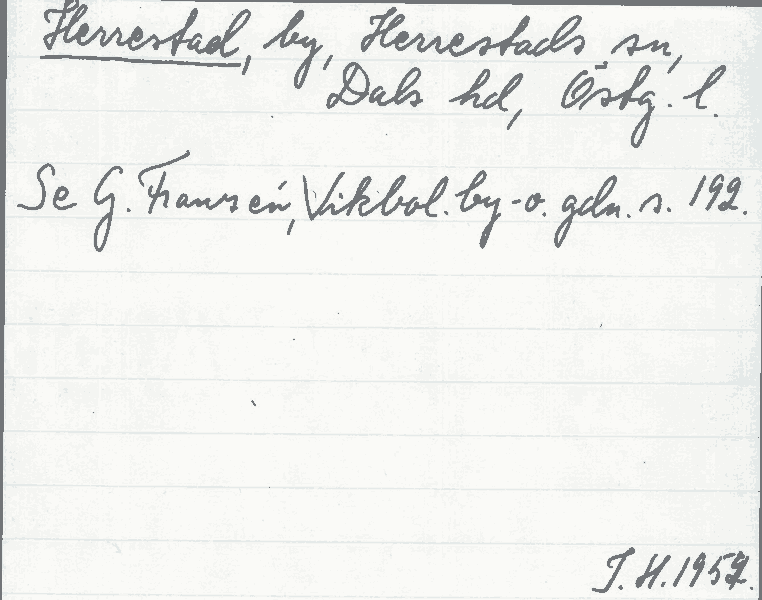 Herrestad, by, Herrestads sn,
Dals hd, Östg. l.
Se G. Fransén, Vikbol. by- o. gdn. s. 192.
J. H. 1957.